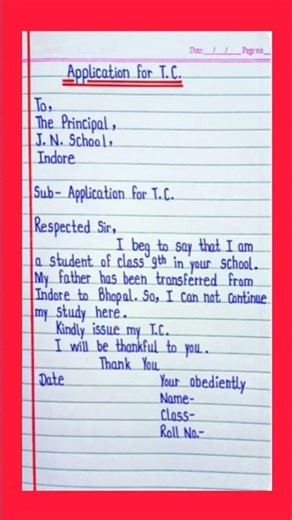 Date: / / Page no:
Application for T.C.
To,
The Principal,
J. N. School,
Indore
Sub- Application for T.C.
Respected Sir,
I beg to say that I am
a student of class 9th in your school.
My father has been transferred from
Indore to Bhopal. So, I can not continue
my study here.
Kindly issue my T.C.
I will be thankful to you..
Thank You
Date Your obediently
Name-
Class-
Roll No.-